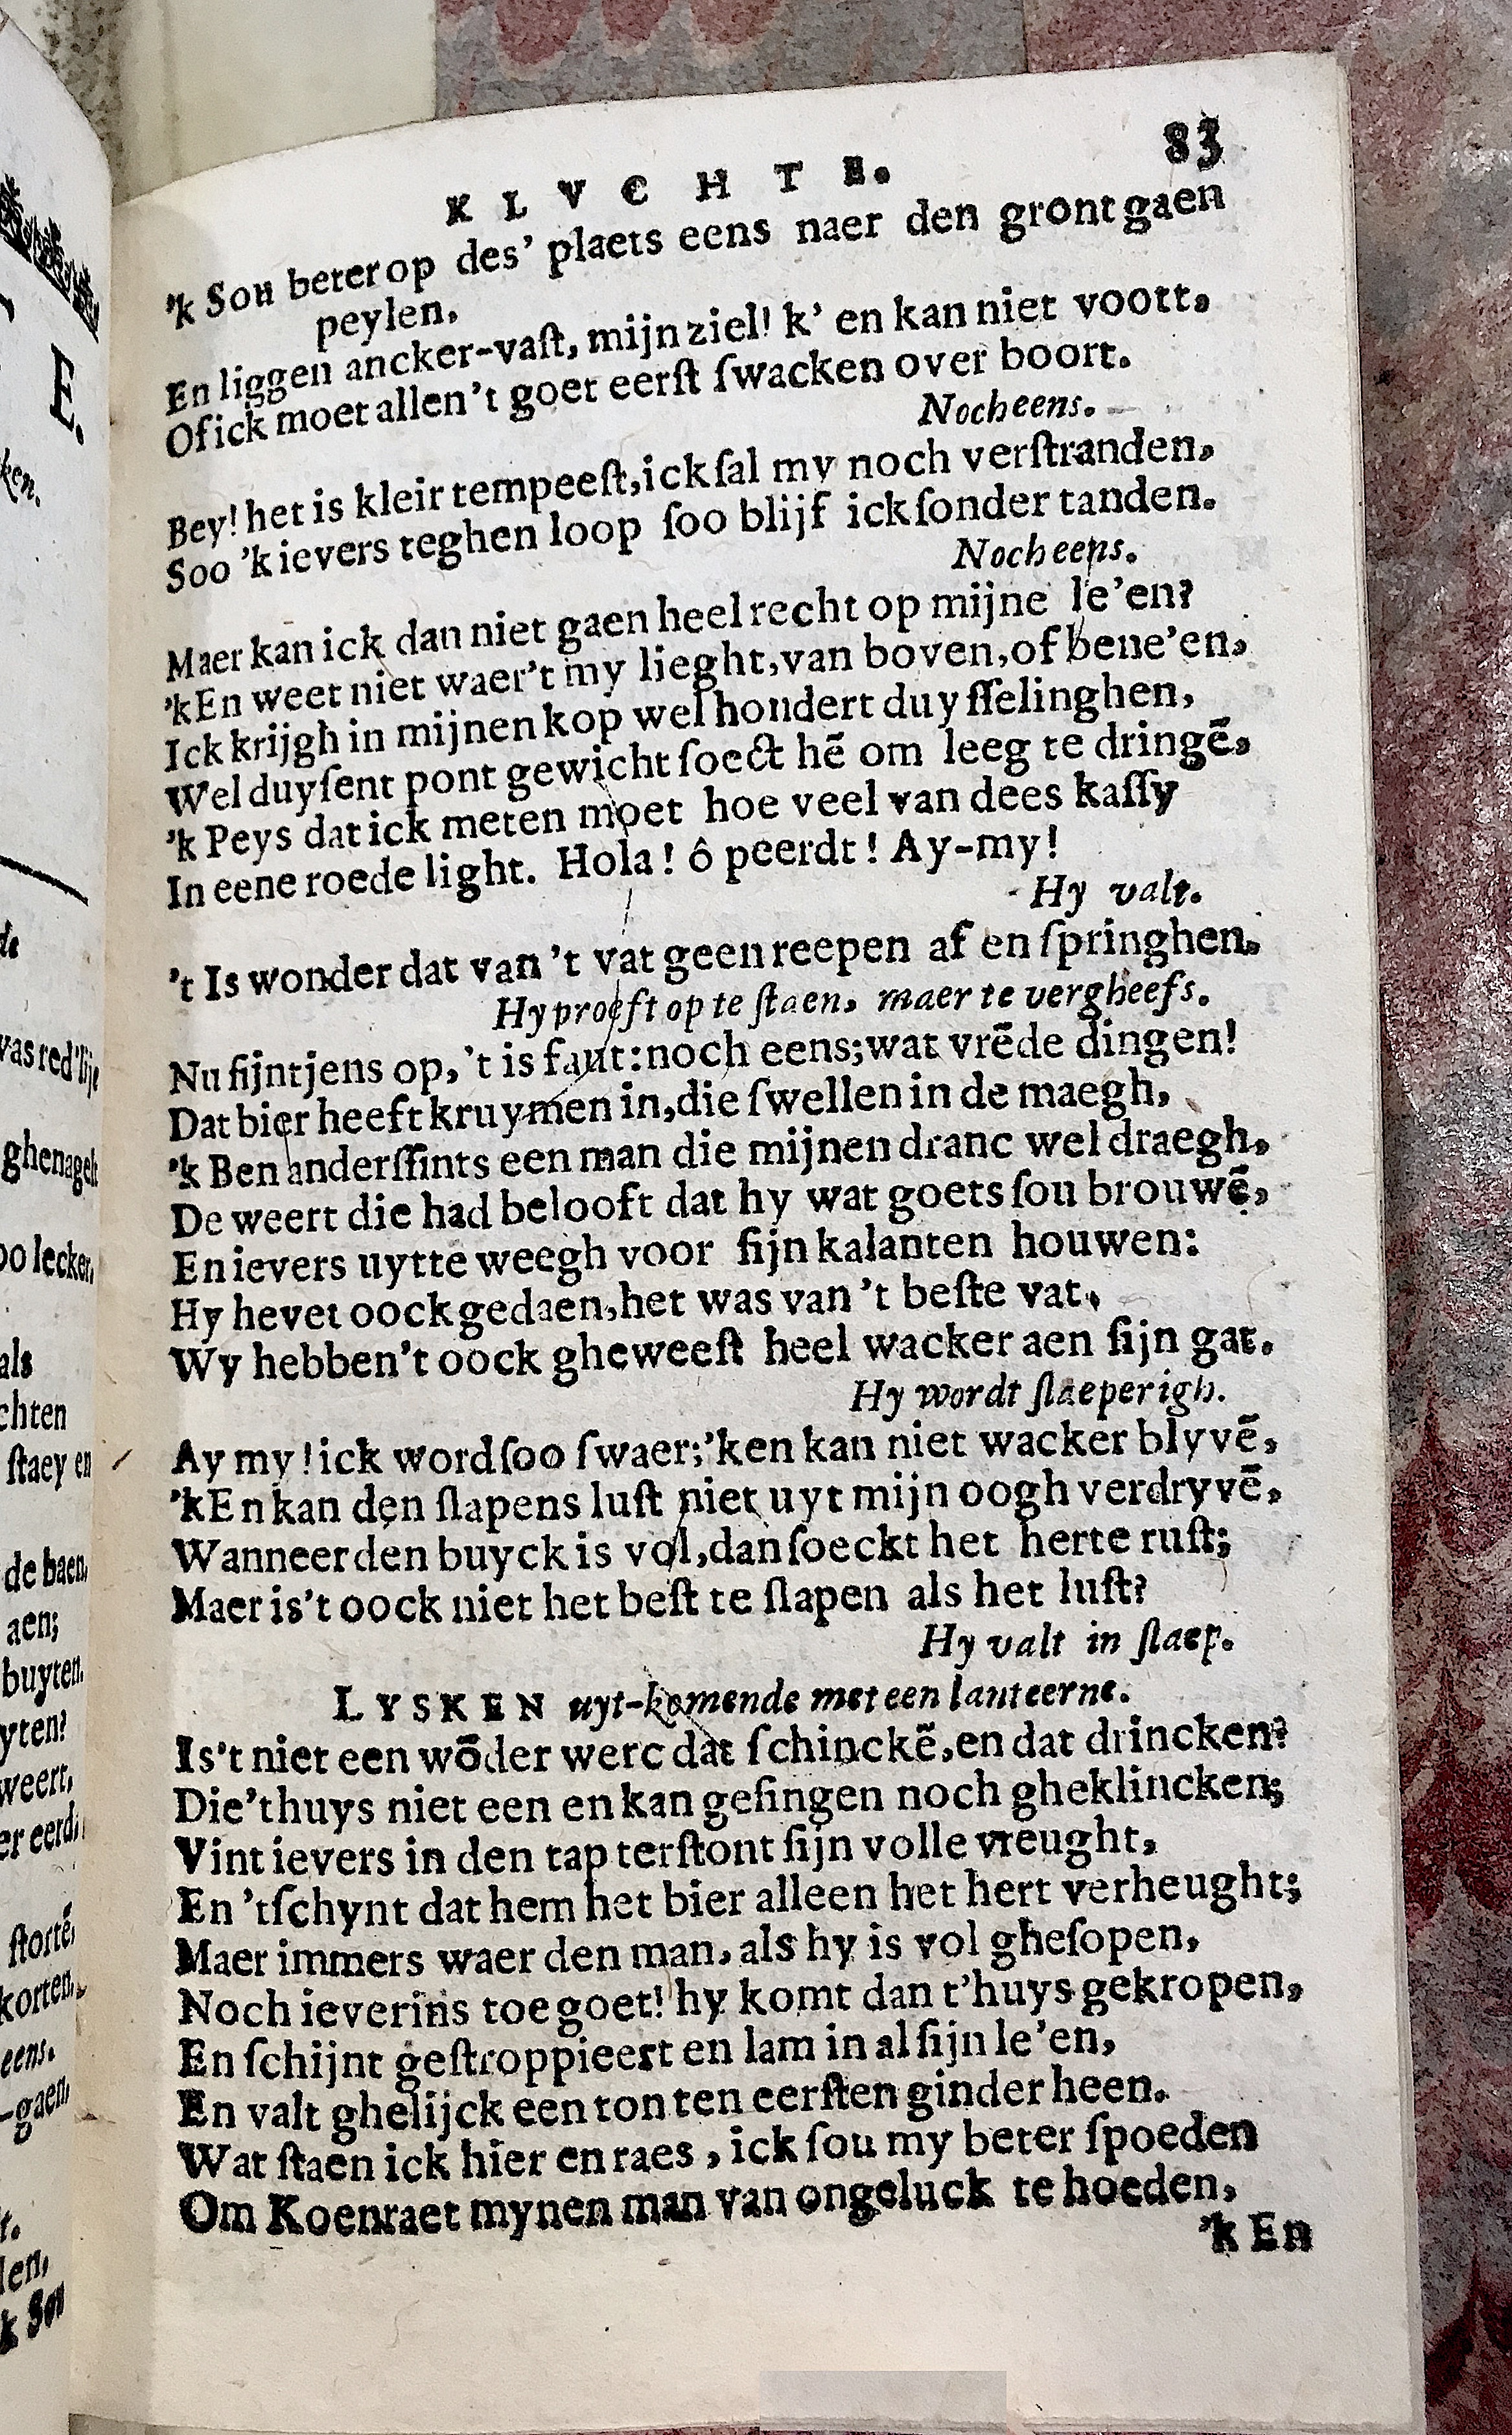 KLVCHTE. 83
'k Sou beter op des' plaets eens naer den gront gaen
peylen.
En liggen ancker-vaſt, mijn ziel! k' en kan niet voott.
Of ick moet allen't goet eerſt ſwacken over boort.
Noch eens.
Bey! het is kleir tempeeſt, ick ſal my noch verſtranden,
Soo 'k ievers teghen loop ſoo blijf ick ſonder tanden.
Noch eens.
Maer kan ick dan niet gaen heel recht op mijne le'en?
'k En weet niet waer't my lieght, van boven, of bene'en,
Ick krijgh in mijnen kop wel hondert duyſſelinghen,
Wel duyſent pont gewicht ſoect hē om leeg te dringē,
'k Peys dat ick meten moet hoe veel van dees kaſſy
In eene roede light. Hola! ô peerdt! Ay-my!
Hy valt.
't Is wonder dat van 't vat geen reepen af en ſpringhen.
Hy proeft op te ſtaen, maer te vergheefs.
Nu ſijntjens op, 't is faut: noch eens; wat vrēde dingen!
Dat bier heeft kruymen in, die ſwellen in de maegh,
'k Ben anderſſints een man die mijnen dranc wel draegh,
De weert die had belooft dat hy wat goets ſou brouwē,
En ievers uytte weegh voor ſijn kalanten houwen:
Hy hevet oock gedaen, het was van 't beſte vat,
Wy hebben't oock gheweeſt heel wacker aen ſijn gat.
Hy wordt ſlaeperigh.
Ay my! ick word ſoo ſwaer; 'ken kan niet wacker blyvē,
'k En kan den ſlapens luſt niet uyt mijn oogh verdryvē,
Wanneer den buyck is vol, dan ſoeckt het herte ruſt;
Maer is't oock niet het beſt te ſlapen als het luſt?
Hy valt in ſlaep.
LYSKEN uyt-komende met een lanteerne.
Is't niet een wōder werc dat ſchinckē, en dat drincken?
Die't huys niet een en kan geſingen noch gheklincken;
Vint ievers in den tap terſtont ſijn volle vreught,
En 't ſchynt dat hem het bier alleen het hert verheught;
Maer immers waer den man, als hy is vol gheſopen,
Noch ieverins toe goet! hy komt dan t'huys gekropen,
En ſchijnt geſtroppieert en lam in al ſijn le'en,
En valt ghelijck een ton ten eerſten ginder heen.
Wat ſtaen ick hier en raes, ick ſou my beter ſpoeden
Om Koenraet mynen man van ongeluck te hoeden,
'k En